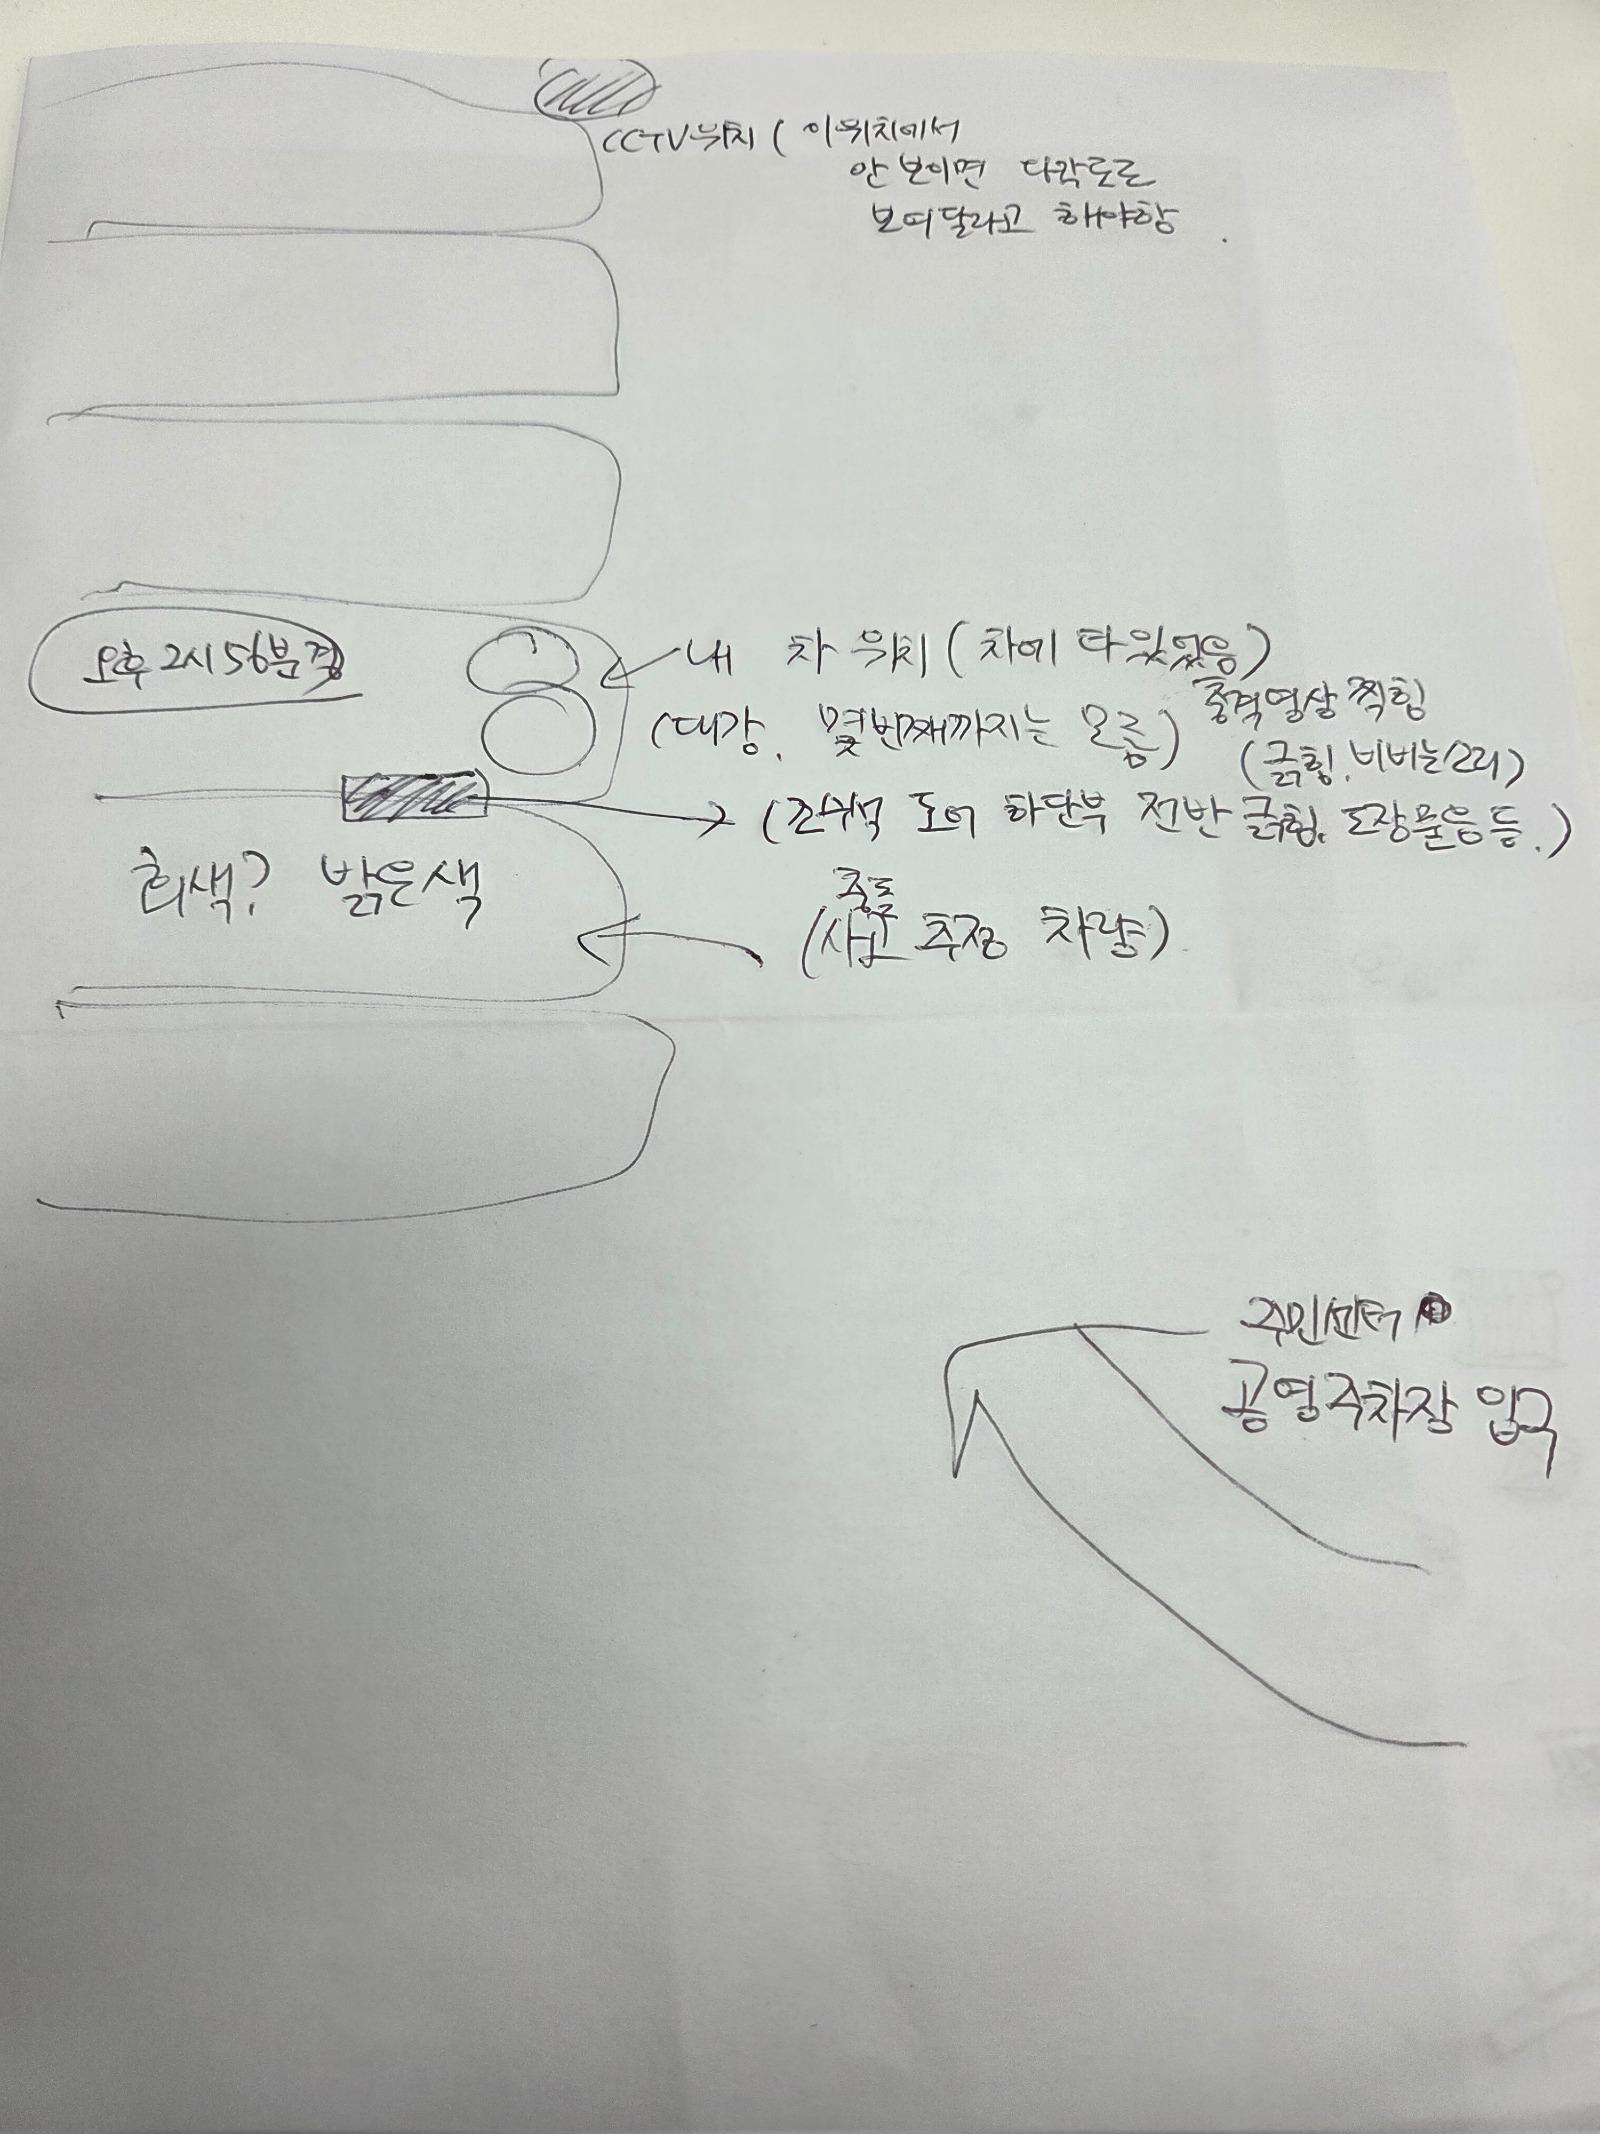 CCTV위치 ( 이위치에서
안 보이면 다각도로
보여달라고 해야함.
오후 2시 56분경
내 차 위치 (차에 타 있었음)
(대강, 몇번째까지는 모름)
충격영상 찍힘
(긁힘, 비비는소리)
(조수석 도어 하단부 전반 긁힘, 도장묻음 등.)
회색? 밝은색
충돌
(사고 추정 차량)
주민센터
공영주차장 입구